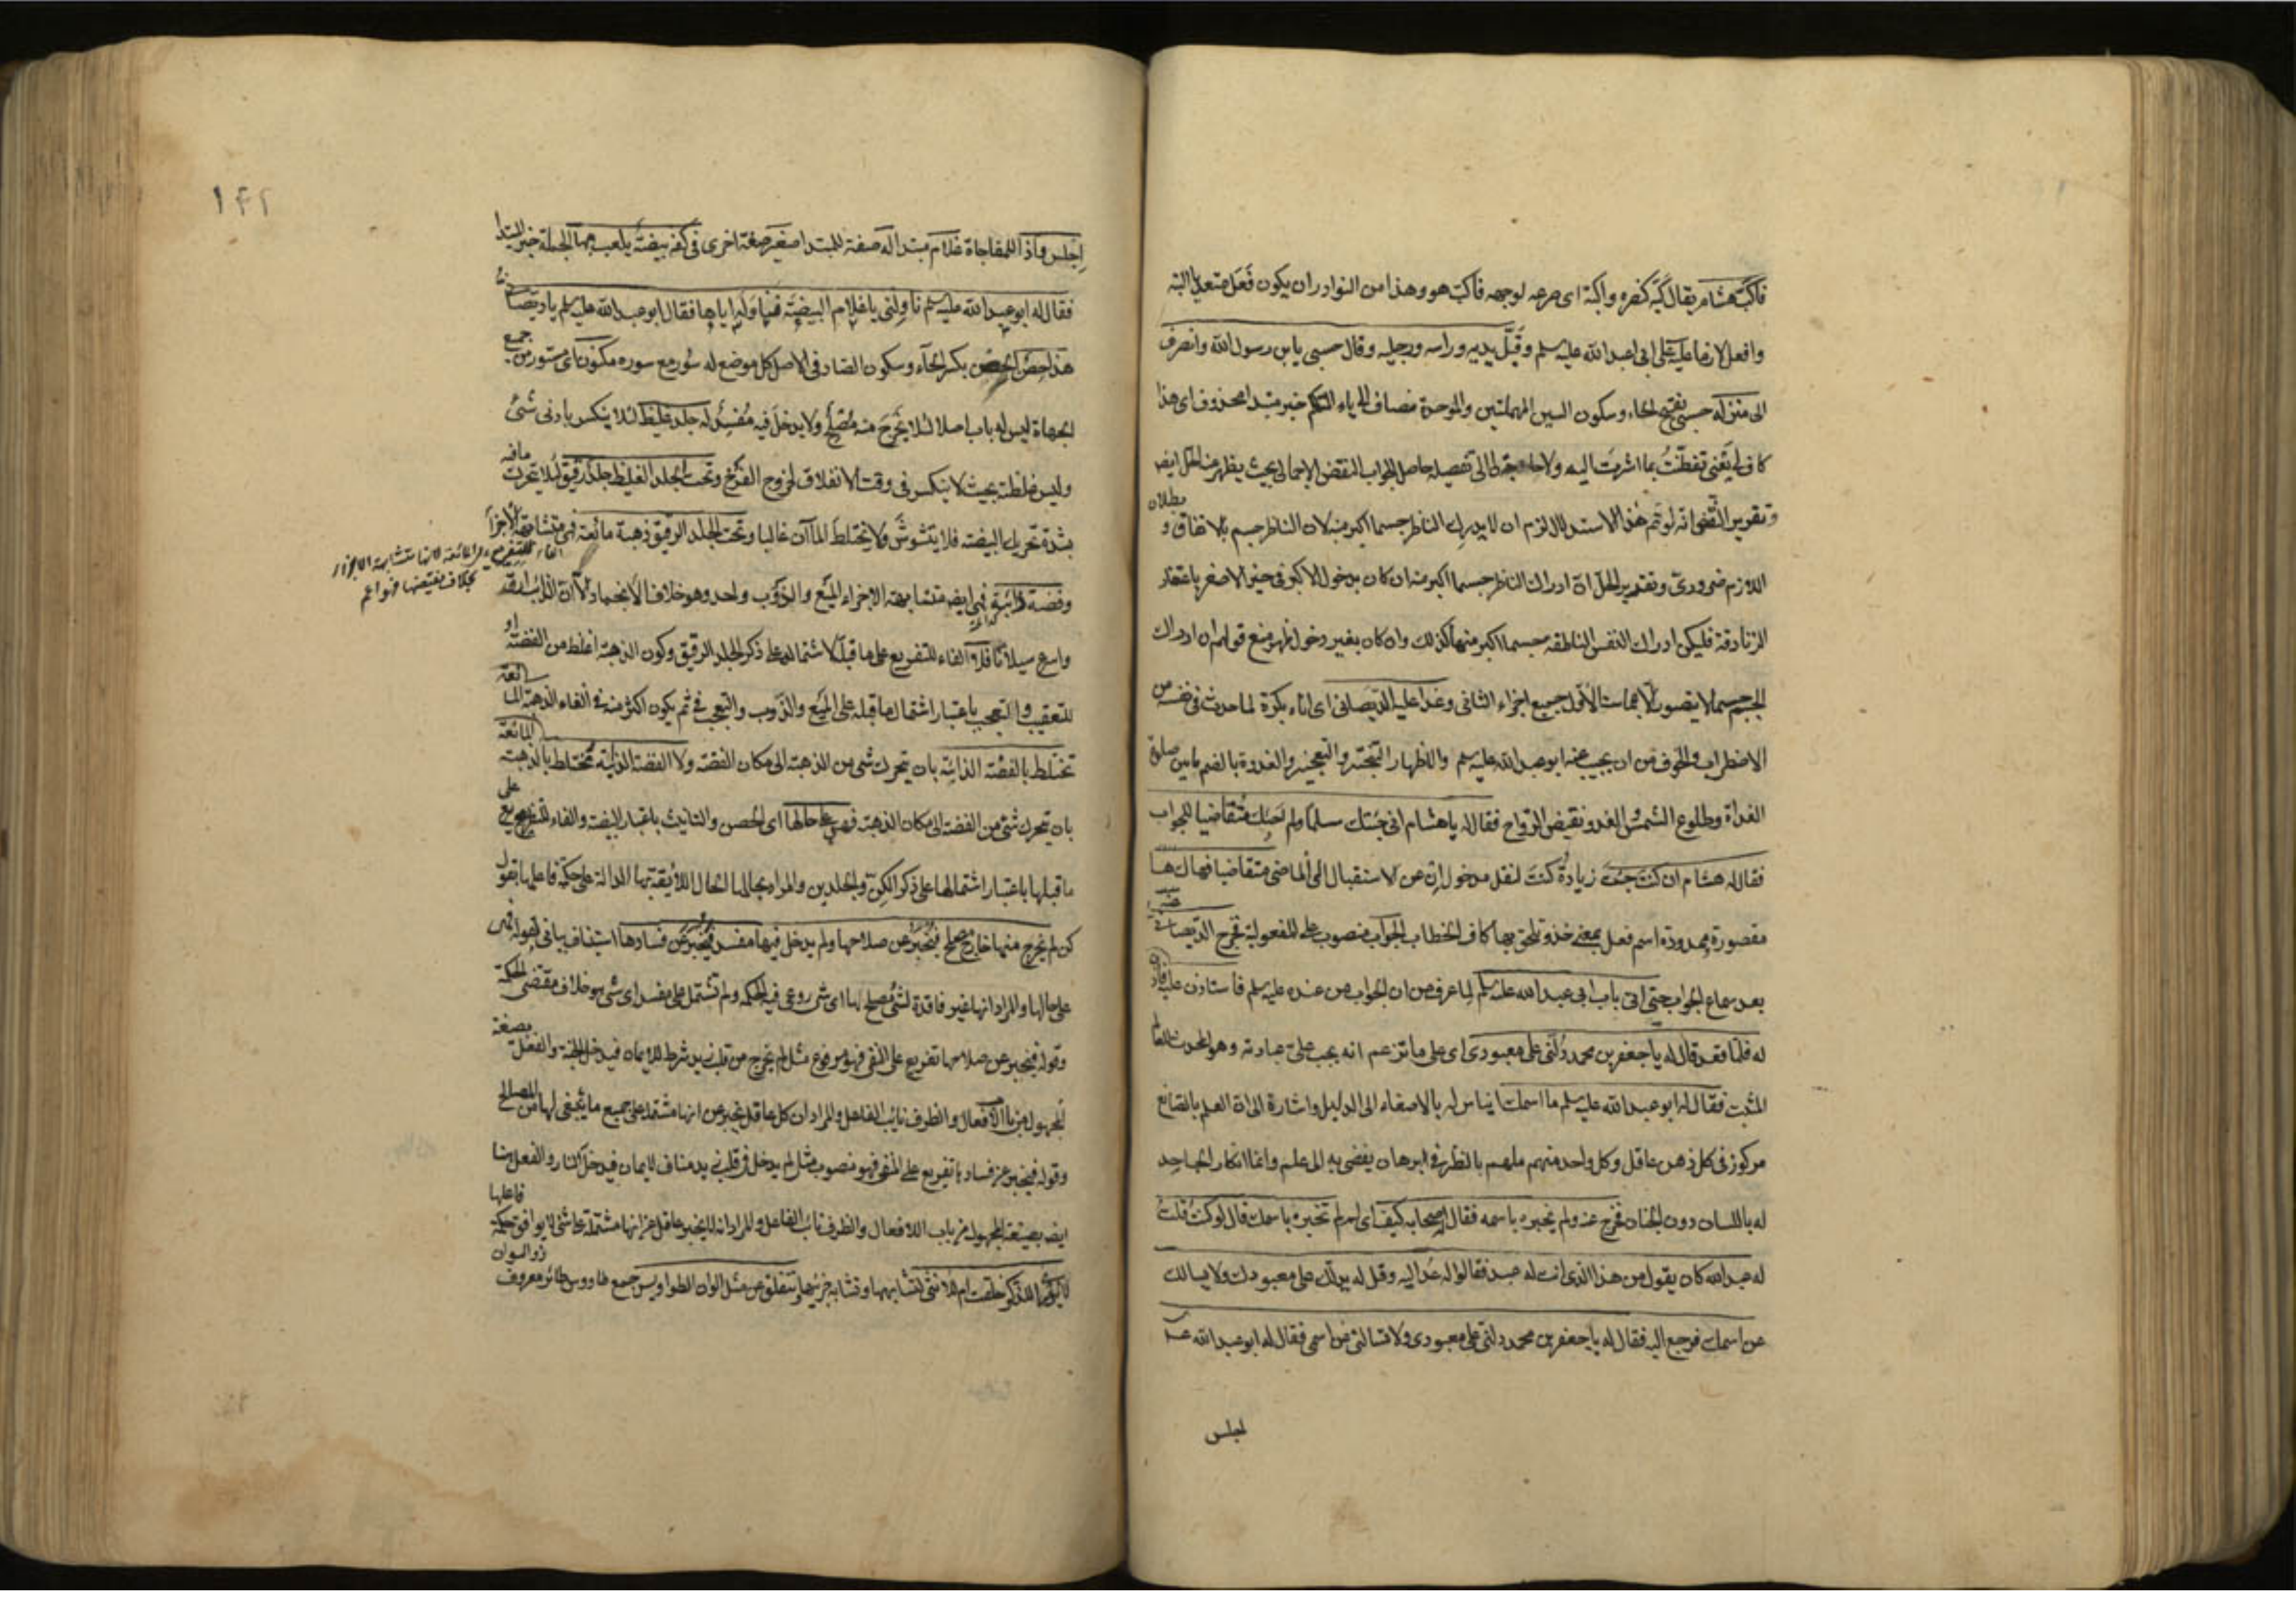 فاكبّ هشام يقال كبّه كنصره واكبّه اى صرعه لوجهه فاكبّ هو وهذا من النوادر ان يكون فَعَل متعديا البته
وافعل لازما عليه على ابى عبد الله عليه سلم وقبّل يديه وراسه ورجليه وقال حسبى يابن رسول الله وانصرف
الى منزله حسبى بفتح الحاء وسكون السين المهملتين والموحدة مضاف الى ياء المتكلم خبر مبتدا محذوف اى هذا
كاف لى يعنى تفطنتُ بما اشرت اليه ولا حاجة لى الى تفصيله حاصل الجواب النقض الاجمالى بحيث يظهر منه الحل ايضا
وتقرير النقض انه لو تم هذا الاستدلال لزم ان لا يدرك الناظر جسما اكبر منه لان الناظر جسم بالاتفاق و بطلان
اللازم ضرورى وتقرير الحل ان ادراك الناظر جسما اكبر منه ان كان بدخول الاكبر فى حيز الاصغر باعتقاد
الزنادقة فليكن ادراك النفس الناطقة جسما اكبر منها كذلك وان كان بغير دخول فهو منع قولهم ان ادراك
الجسم جسما لا يتصور الا بمماسة الاول جميع اجزاء الثانى وغدا عليه الديصانى اى اتاه بكرة لما حدث فى نفسه من
الاضطراب والخوف من ان يجيب عنه ابو عبد الله عليه سلم والاظهار التبختر والتبجح والغدوة بالضم ما بين صلوة
الغداة وطلوع الشمس والغدو نقيض الرواح فقال له يا هشام انى جئتك مسلّما ولم اجئك متقاضيا للجواب
فقال له هشام ان كنت جئت زيادة كنت لنقل مدخول ان عن الاستقبال الى الماضى متقاضيا فهاك ها
مقصورة وممدودة اسم فعل بمعنى خذ وتلحق بها كاف الخطاب الجواب منصوب على المفعولية فخرج الديصانى عنه
بعد سماع الجواب حتى اتى باب ابى عبد الله عليه سلم لما عرف من ان الجواب من عنده عليه سلم فاستاذن عليه فاذن
له فلما قعد قال له يا جعفر بن محمد دُلّنى على معبودى اى على ما تزعم انه يجب علىّ عبادته وهو المحدث للعالم
المثبت فقال له ابو عبد الله عليه سلم ما اسمك ايناس له بالاصغاء الى الدليل واشارة الى ان العلم بالصانع
مركوز فى كل ذهن عاقل وكل واحد منهم ملهم بالنظر فى برهان يفضى به الى علم وانما انكار الجاحد
له باللسان دون الجنان فخرج عنه ولم يخبره باسمه فقال له اصحابه كيف اى لم لم تخبره باسمك قال لو كنت قلت
له عبد الله كان يقول من هذا الذى انت له عبد فقالوا له عُد اليه وقل له يدلّك على معبودك ولا يسالك
عن اسمك فرجع اليه فقال له يا جعفر بن محمد دلّنى على معبودى ولا تسالنى عن اسمى فقال له ابو عبد الله عـ
اجلس
١٤٢
اِجلس واذا للمفاجاة غلام مبتدا له صفة للمبتدا صغير صفة اخرى فى كفه بيضة يلعب بها الجملة خبر المبتدا
فقال له ابو عبد الله عليه سلم ناوِلنى يا غلام البيضة فناوَله اياها فقال ابو عبد الله عليه سلم يا ديصانى
هذا حِصن الحصن بكسر الحاء وسكون الصاد فى الاصل كل موضع له سُور مع سوره مكنون اى مستور من جميع
الجهاة ليس له باب اصلا لئلا يخرج منه مُصلح ولا يدخل فيه مُفسد له جلد غليظ لئلا ينكسر بادنى شىء
وليس غلظته بحيث لا ينكسر فى وقت الانفلاق لخروج الفرخ وتحت الجلد الغليظ جلد رقيق لئلا يتحرك ما فيه
بشدة تحريك البيضة فلا يتشوش ولا يختلط الماآن غاليا وتحت الجلد الرقيق ذهبة مائعة هى متشابهة الاجزاء
وفضة ذائبة فهى ايضا متشابهة الاجزاء الميع والذوب واحد وهو خلاف الانجماد الا ان الذائب ارقّ
واسرع سيلانا فلا الفاء للتفريع على ما قبله لاشتماله على ذكر الجلد الرقيق وكون الذهبة اغلظ من الفضة او
للتعقيب والتعجب باعتبار اشتمال ما قبله على الميع والذوب والتعجب فى ثم يكون اكثر منه فى الفاء الذهبة المائعة
تختلط بالفضة الذائبة بان يتحرك شىء من الذهبة الى مكان الفضة ولا الفضة الذائبة تختلط بالذهبة المائعة
بان يتحرك شىء من الفضة الى مكان الذهبة فهى على حالها اى الحصن والتانيث باعتبار البيضة والفاء للتفريع على
ما قبلها باعتبار اشتمالها على ذكر الكِنّ والجلدين والمراد بحالها الحال اللائقة بها الدالة على حكمة فاعلها بقول
كن لم يخرج منها خارج مصلح فيُخبر عن صلاحها ولم يدخل فيها مفسد فيُخبر عن فسادها استيناف بيانى لقوله فهى
على حالها والمراد انها غير فاقدة لشىء مصلح لها اى شىء روعى فيه الحكمة ولم تشتمل على مفسد اى شىء هو خلاف مقتضى الحكمة
وقوله فيخبر عن صلاحها تفريع على النفى فهو مرفوع مثل لم يخرج من قلب زيد شرط للايمان فيدخل الجنة والفعل بصيغة
المجهول من باب الافعال والظرف نائب الفاعل والمراد ان كل عاقل يخبر عن انها مشتملة على جميع ما ينبغى لها من المصالح
وقوله فيخبر عن فسادها تفريع على المنفى فهو منصوب مثل لم يدخل فى قلب زيد مناف للايمان فيدخل النار والفعل هنا
ايضا بصيغة المجهول من باب الافعال والظرف نائب الفاعل والمراد انه لا يخبر عاقل عن انها مشتملة على شىء لا يوافق حكمة فاعلها
لا يُدرى اللذكر خلقت ام للانثى لتشابهها وتشابه جزئيها تنفلق عن مثل الوان الطواويس جمع طاووس طائر معروف ذو الوان
بخلاف